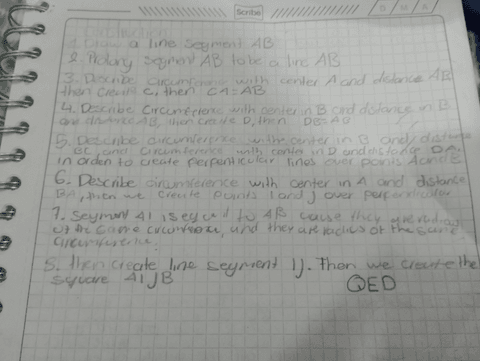 Scribe
D M A
Construction
1. Draw a line segment AB
2. Prolong segment AB to be a line AB
3. Describe circumference with center A and distance AB
then create C, then CA=AB
4. Describe Circumference with center in B and distance in B
and distance AB, then create D, then DB=AB
5. Describe circumference with center in B and distance
BC, and circumference with center in D and distance DA.
in orden to create perpenticular lines over points A and B
6. Describe circumference with center in A and distance
BA, then we create points I and J over perpenticular
7. Segment AI is equal to AB cause they are radius
of the same circumference, and they are radius of the same
circumference.
8. Then create line segment IJ. Then we create the
square AIJB
QED